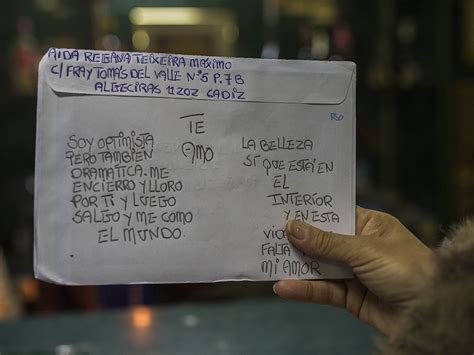 AIDA REGIANA TEIXEIRA MAXIMO
C/ FRAY TOMÁS DEL VALLE Nº5 P.7B
ALGECIRAS 11202 CADIZ
TE
AMO
SOY OPTIMISTA
PERO TAMBIEN
DRAMATICA. ME
ENCIERRO Y LLORO
POR TI Y LUEGO
SALGO Y ME COMO
EL MUNDO.
LA BELLEZA
SÍ QUE ESTÁ EN
EL
INTERIOR
Y EN ESTA
FALTA
MI AMOR